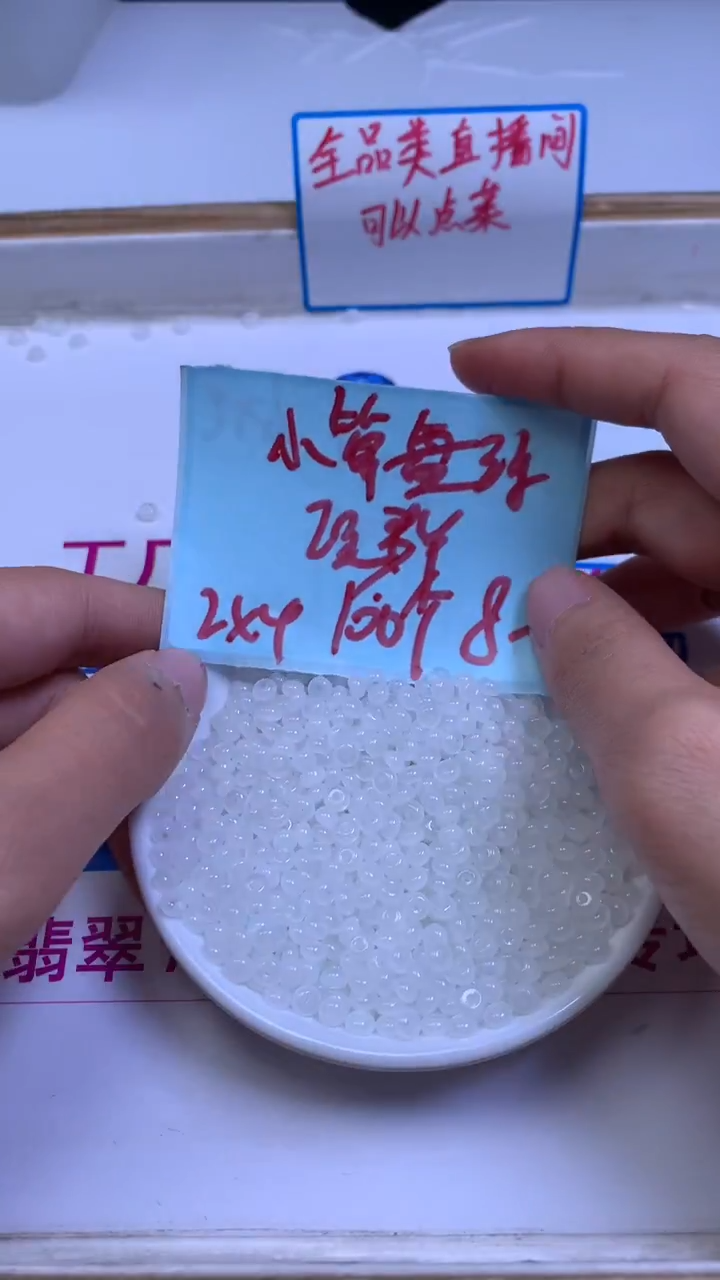 全品类直播间
可以点菜
小算盘珠
2x4 100个 8
工厂
翡翠